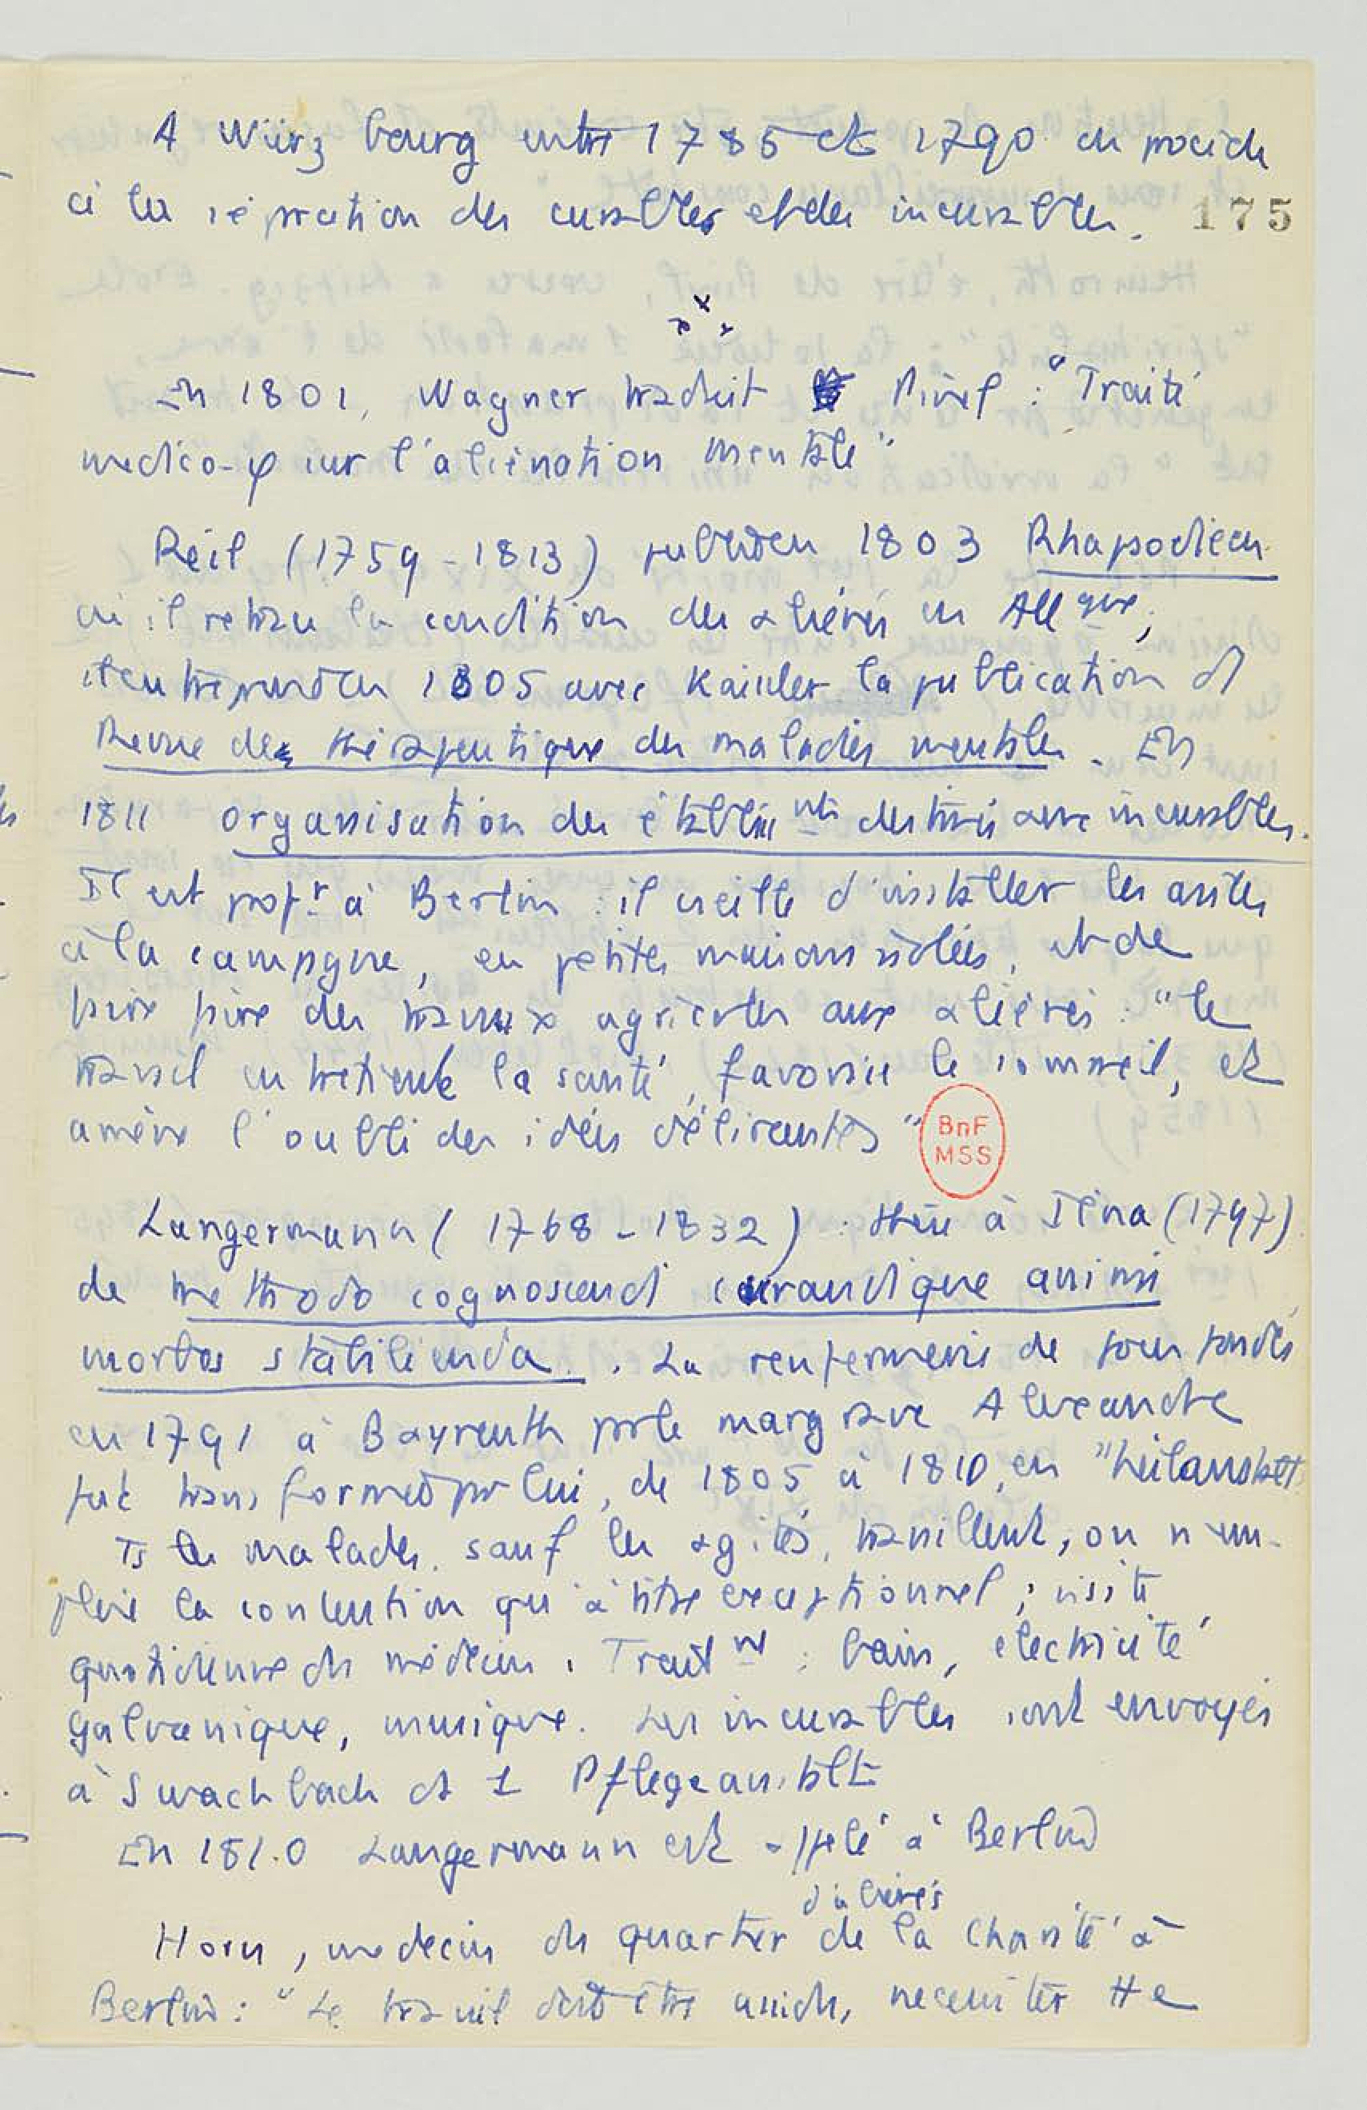 A Würzbourg entre 1785 et 1790 on procède
à la séparation des curables et des incurables.
175
x x x
En 1801, Wagner traduit Pinel : "Traité
medico-φ sur l'aliénation mentale"
Reil (1759-1813) publie en 1803 Rhapsodieen
où il retrace la condition des aliénés en Allgne;
il entreprend en 1805 avec Kaissler la publication d
Revue de thérapeutique des maladies mentales. En
1811 organisation des établissnts destinés aux incurables.
Il est profr à Berlin : il conseille d'installer les asiles
à la campagne, en petites maisons isolées, et de
faire faire des travaux agricoles aux aliénés : "le
travail entretient la santé, favorise le sommeil, et
amène l'oubli des idées délirantes"
BnF
MSS
Langermann (1768-1832) : thèse à Iéna (1797)
de methodo cognoscendi curandique animi
morbos stabilienda. La renfermerie de fous fondée
en 1791 à Bayreuth par le margrave Alexandre
fut transformée par lui, de 1805 à 1810, en "heilanstalt
Ts les malades, sauf les agités, travaillent, on n'em-
ploie la contention qu'à titre exceptionnel ; visite
quotidienne du médecin. Traitnt : bain, électricité
galvanique, musique. Les incurables sont envoyés
à Swachbach ds 1 Pflegeanstalt
En 1810 Langermann est appelé à Berlin
d'aliénés
Horn, medecin du quartier de la Charité à
Berlin : "Le travail doit être assidu, necessiter tte